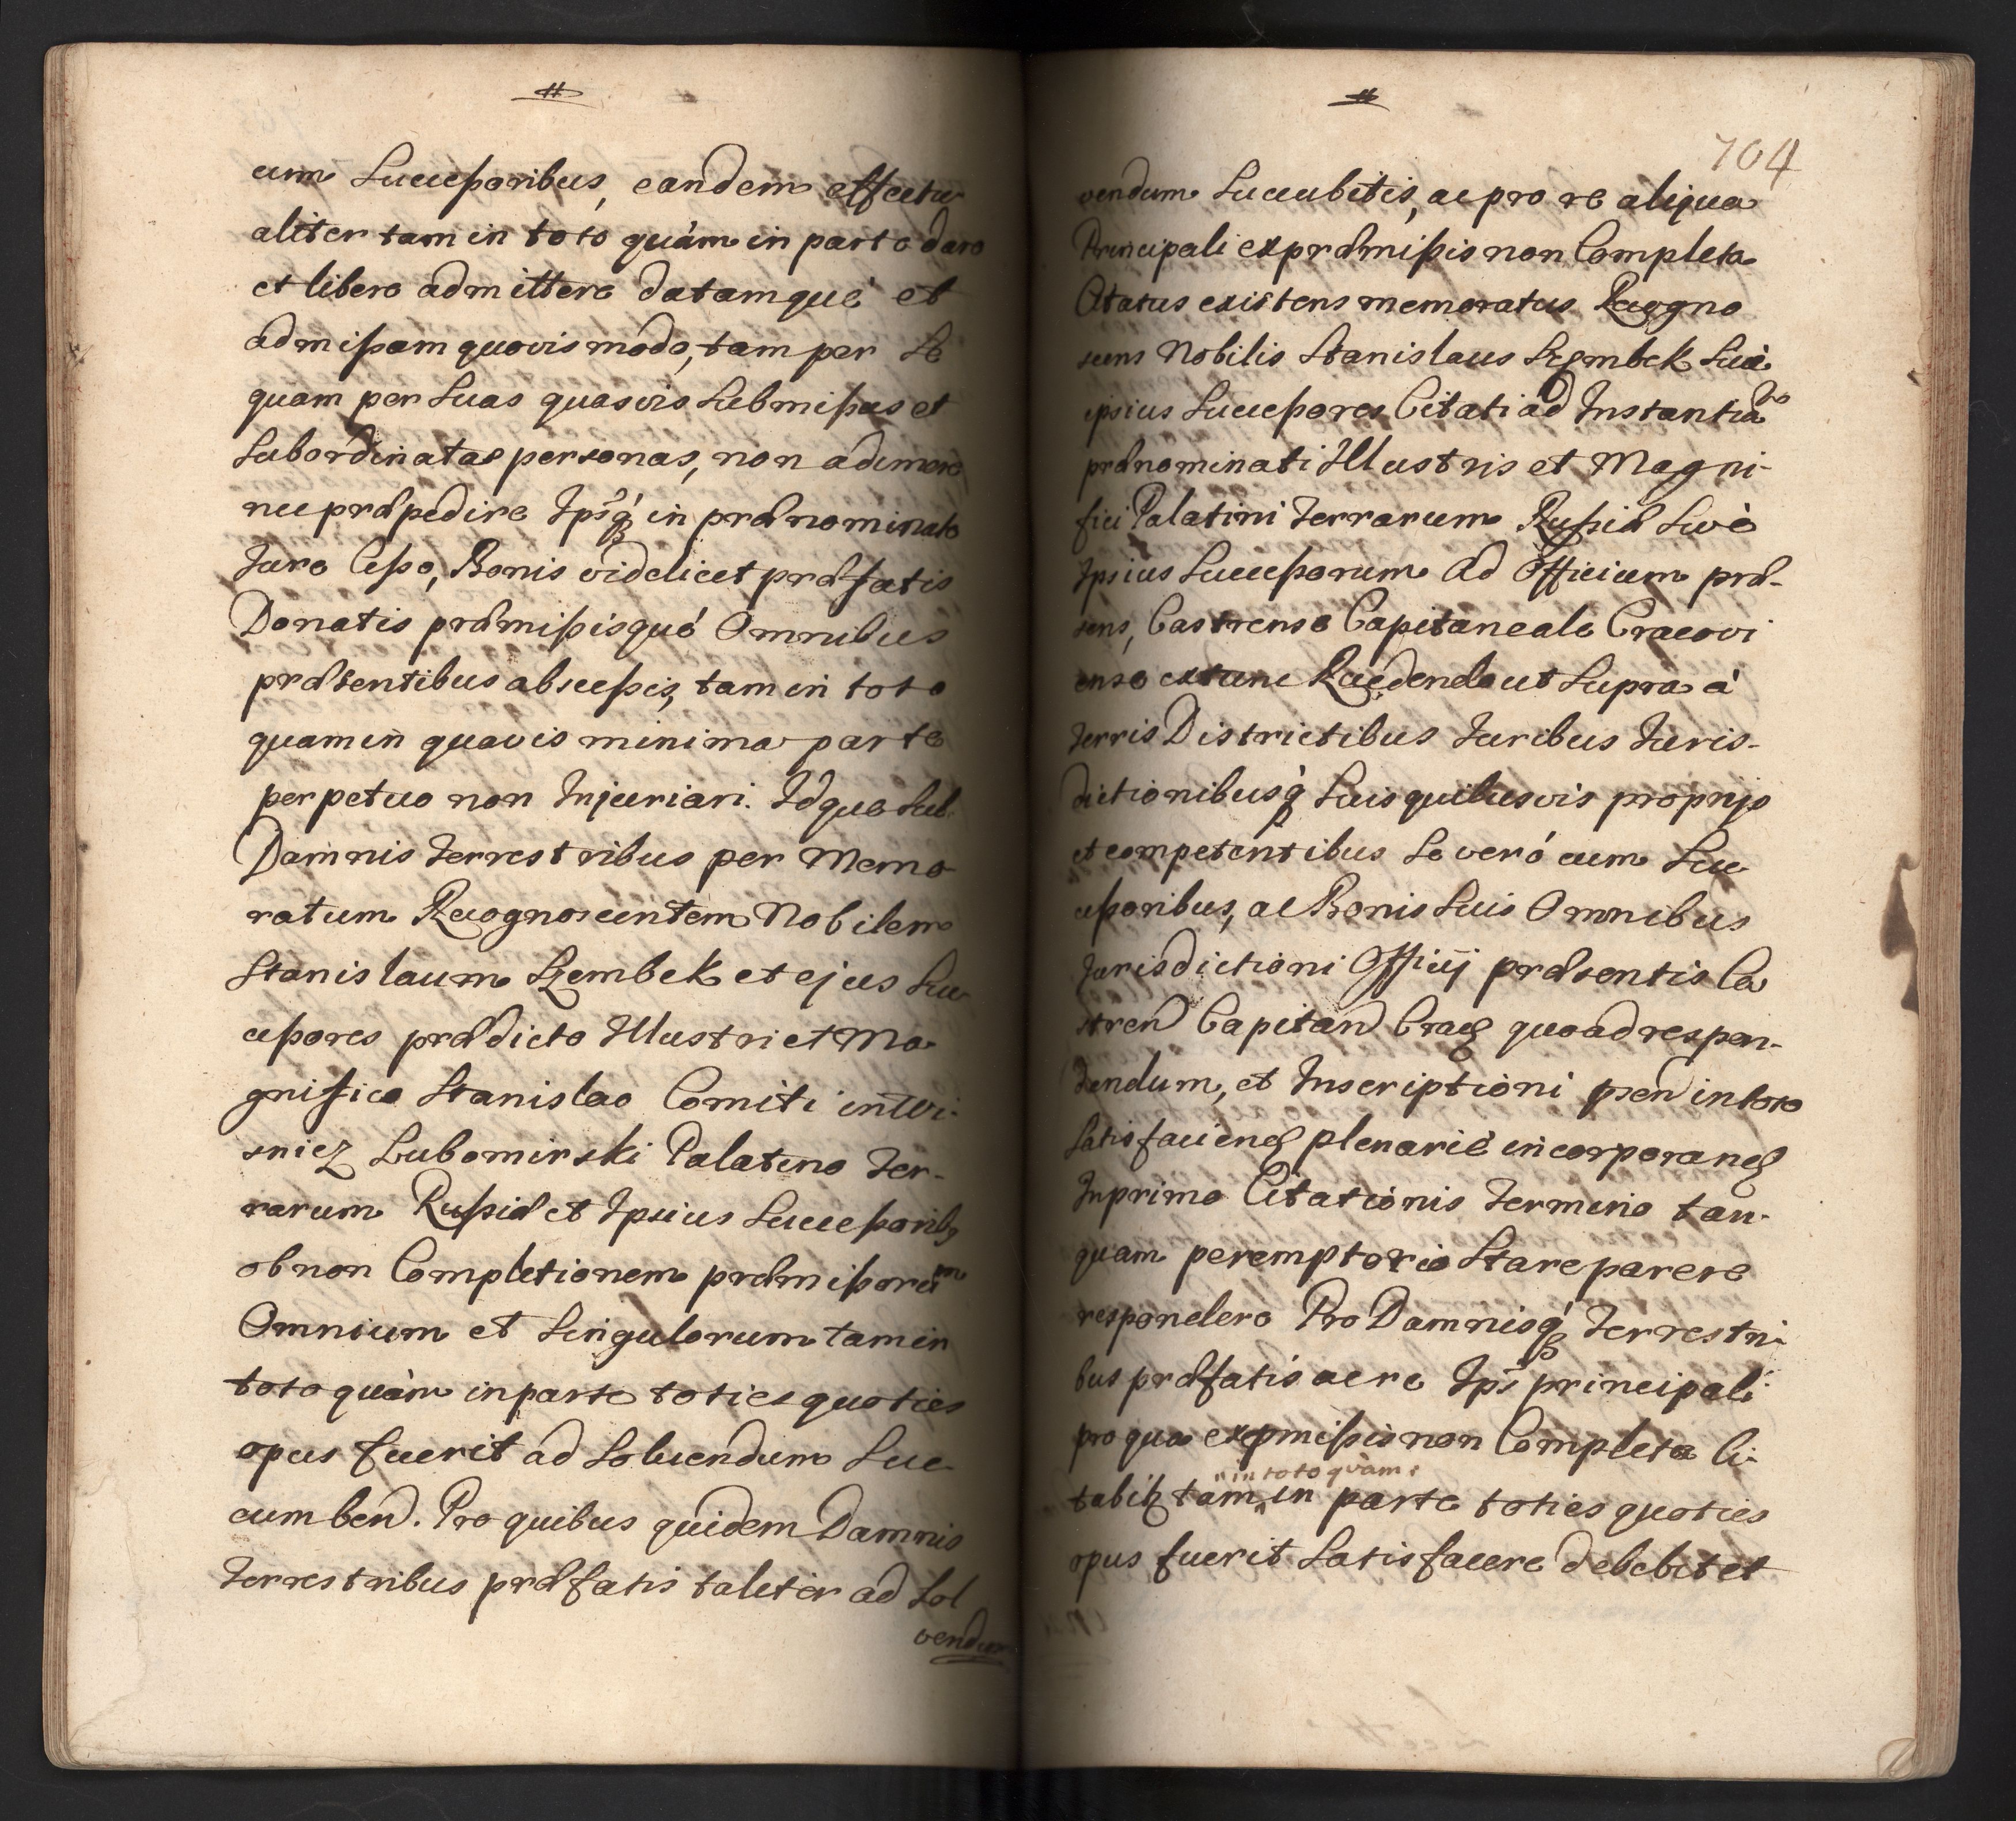 cum Successoribus, eandem effectu
aliter tam in toto quàm in parte dare
et libere admittere datamquè et
admissam quovis modo, tam per Se
quam per Suas quasvis Submissas et
Subordinatas personas, non adimere
nec præpedire Ipsiq́ in prænominato
Jure Cesso, Bonis videlicet præfatis
Donatis præmissisqué Omnibus
præsentibus abscessis, tam in toto
quam in quavis minima parte
perpetuo non Injuriari. Idque Sub
Damnis terrestribus per Memo
ratum Recognoscentem Nobilem
Stanislaum Szembek et ejus Suc
cessores prædicto Illustri et Ma
gnifico Stanislao Comiti in Wi-
snicz Lubomirski Palatino Ter-
rarum Russiæ et Ipsius Successoribg
ob non Completionem præmissorum
Omnium et Singulorum tam in
toto quàm in parte toties quoties
opus fuerit ad Solvendum Suc
cumbend. Pro quibus quidem Damnis
terrestribus præfatis taliter ad Sol
vendum
704
vendum Succubitis, ac pro re aliqua
Principali ex præmissis non Completa
Citatus existens memoratus Recogno
scens Nobilis Stanislaus Szembek Suè
ipsius Successores Citati ad Instantiam
prænominati Illustris et Magni-
fici Palatini terrarum Russiæ Swè
Ipsius Successorum Ad Officium præ-
sens, Castrense Capitaneale Cracovi
ense extunc Recedendo ut Supra à
terris Districtibus Juribus Juris-
dictionibusq́ Suis quibusvis proprijs
et competentibus Se veró cum Suc
cessoribus, ac Bonis Suis Omnibus
Jurisdictioni Officij præsentis Ca
stren Capitan Crac quoad respon-
dendum, et Inscriptioni pñ in toto
Satisfaciend plenarié incorporand
In primo Citationis Termino tan-
quam peremptorio Stare parere
respondere Pro Damnisq́ terrestri-
bus præfatis ac re Ips principali
pro qua ex pmissis non Completa Ci-
tabit tam in toto quàm in parte toties quoties
opus fuerit Satisfacere debebit et